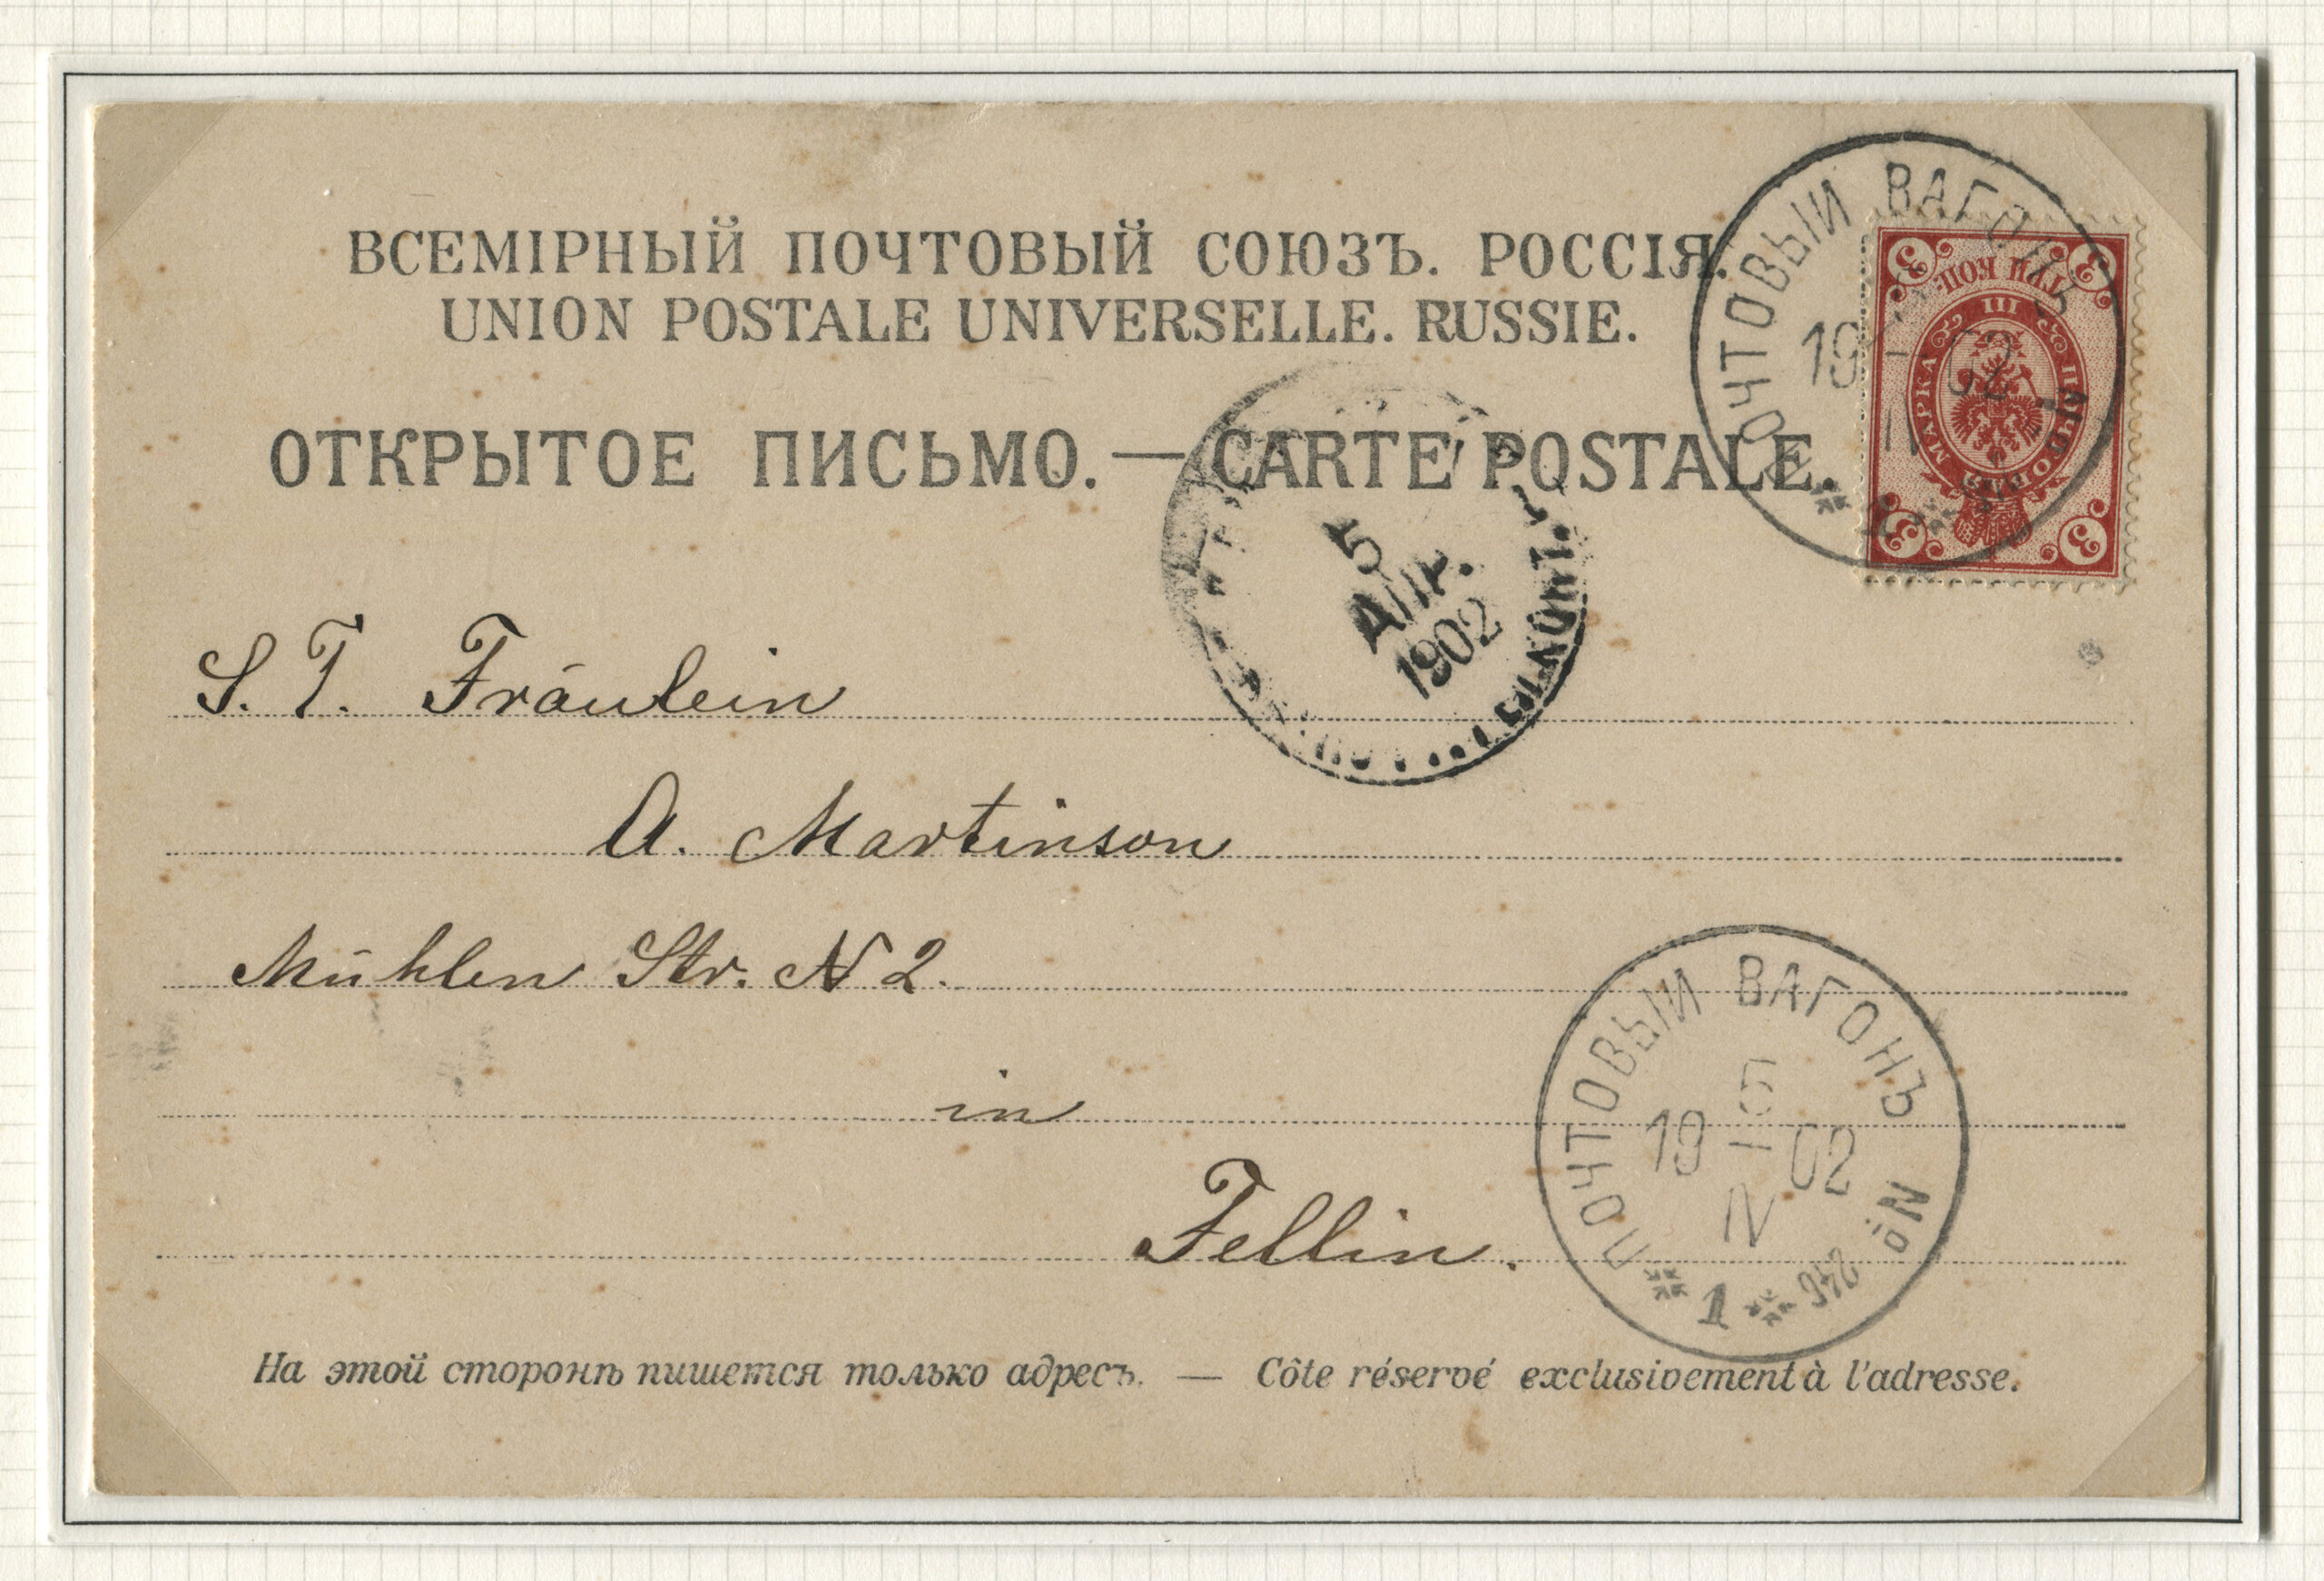 ВСЕМІРНЫЙ ПОЧТОВЫЙ СОЮЗЪ. РОССІЯ.
UNION POSTALE UNIVERSELLE. RUSSIE.
ОТКРЫТОЕ ПИСЬМО. — CARTE POSTALE.
ПОЧТОВЫЙ ВАГОНЪ
19 02
1
3 3
ТРИ КОП.
III
ПОЧТОВАЯ МАРКА
3 3
5
АПР.
1902
S. T. Fräulein
A. Martinson
Mühlen Str. N 2.
in
Fellin.
ПОЧТОВЫЙ ВАГОНЪ № 246
5
19 02
IV
1
На этой сторонѣ пишется только адресъ. — Côte réservé exclusivement à l'adresse.